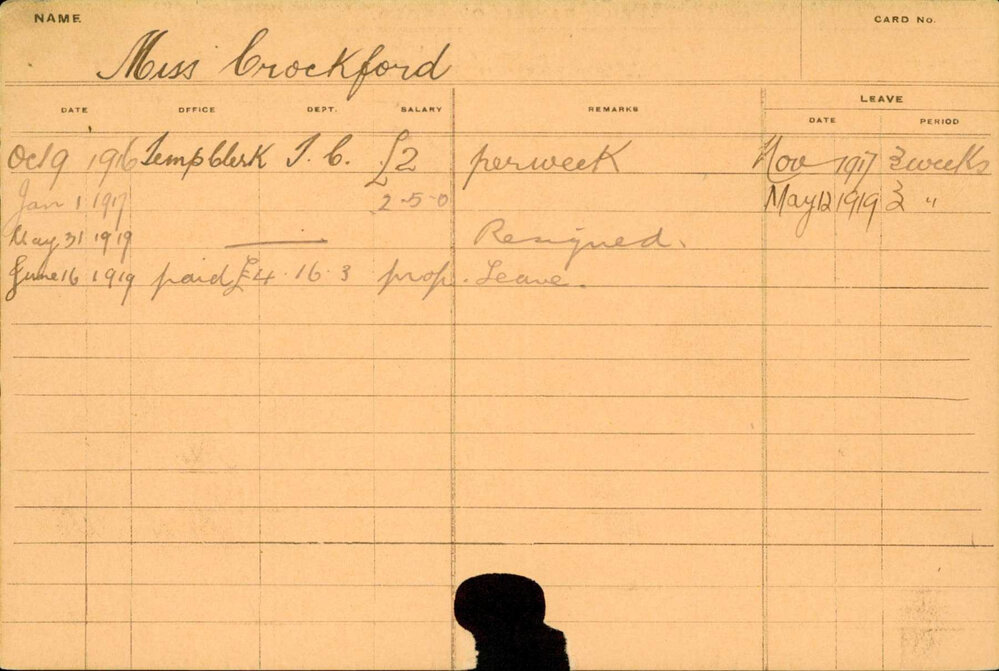 NAME CARD No.
Miss Crockford
LEAVE
DATE OFFICE DEPT. SALARY REMARKS DATE PERIOD
Oct 9 1916 Temp Clerk T. C. £2 per week Nov 1917 3 weeks
Jan 1 1917 2-5-0 May 12 1919 3 "
May 31 1919 Resigned.
June 16 1919 paid £4. 16. 3 prop. Leave.